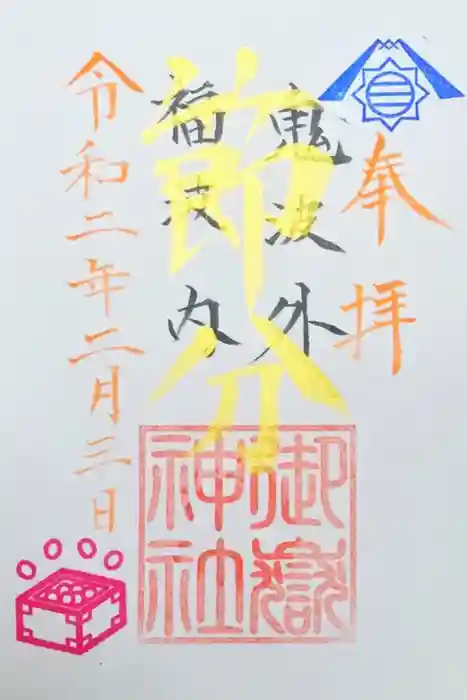 奉拝
鬼波外
福波内
節分
令和二年二月三日
御嶽
神社
三